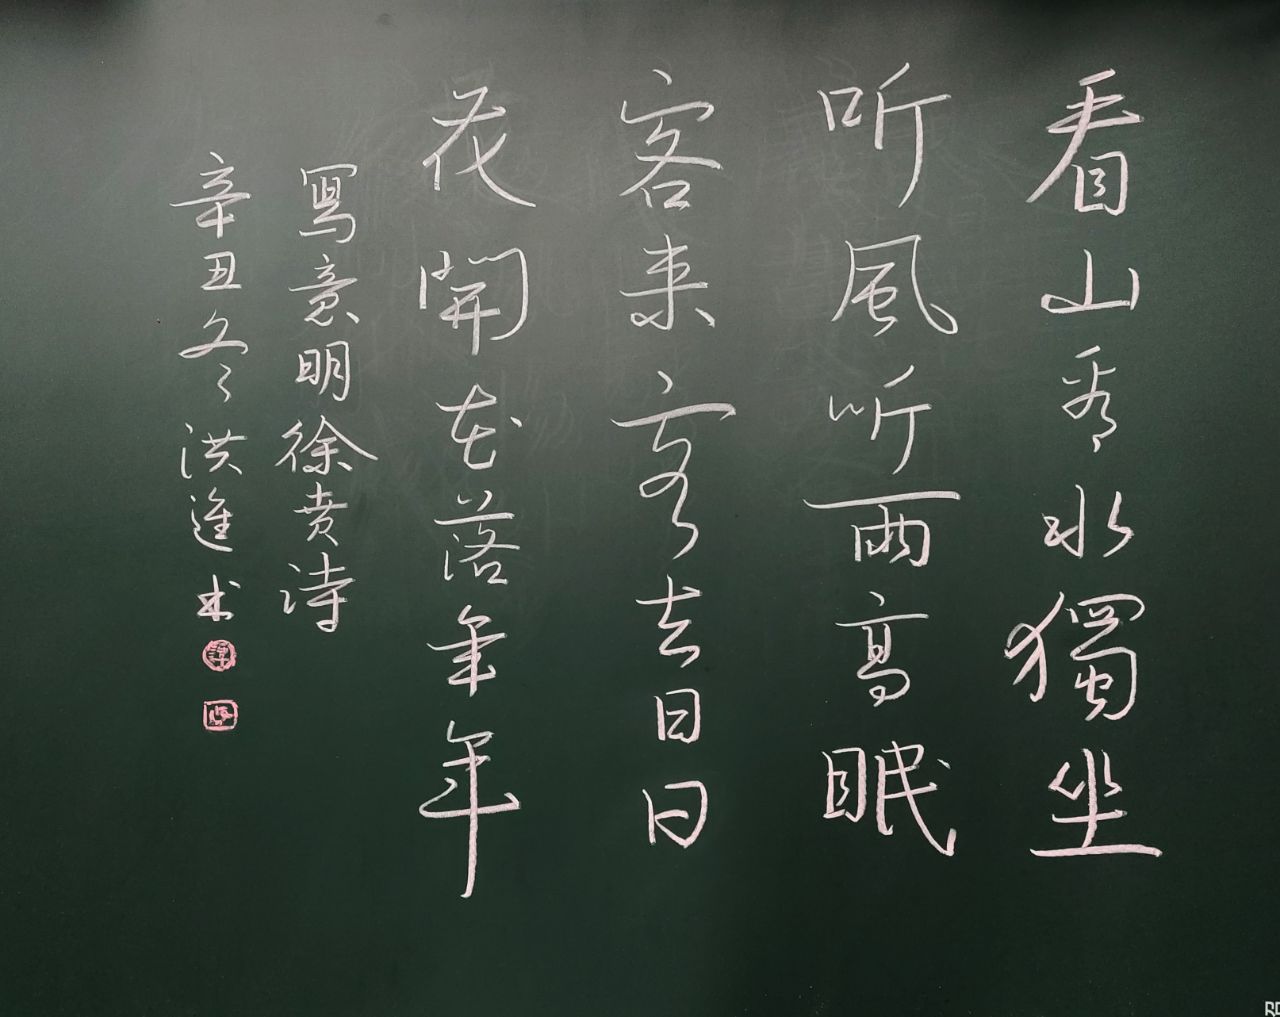 看山看水獨坐
听風听雨高眠
客来客去日日
花開花落年年
寫意明徐贲诗
辛丑冬洪進术